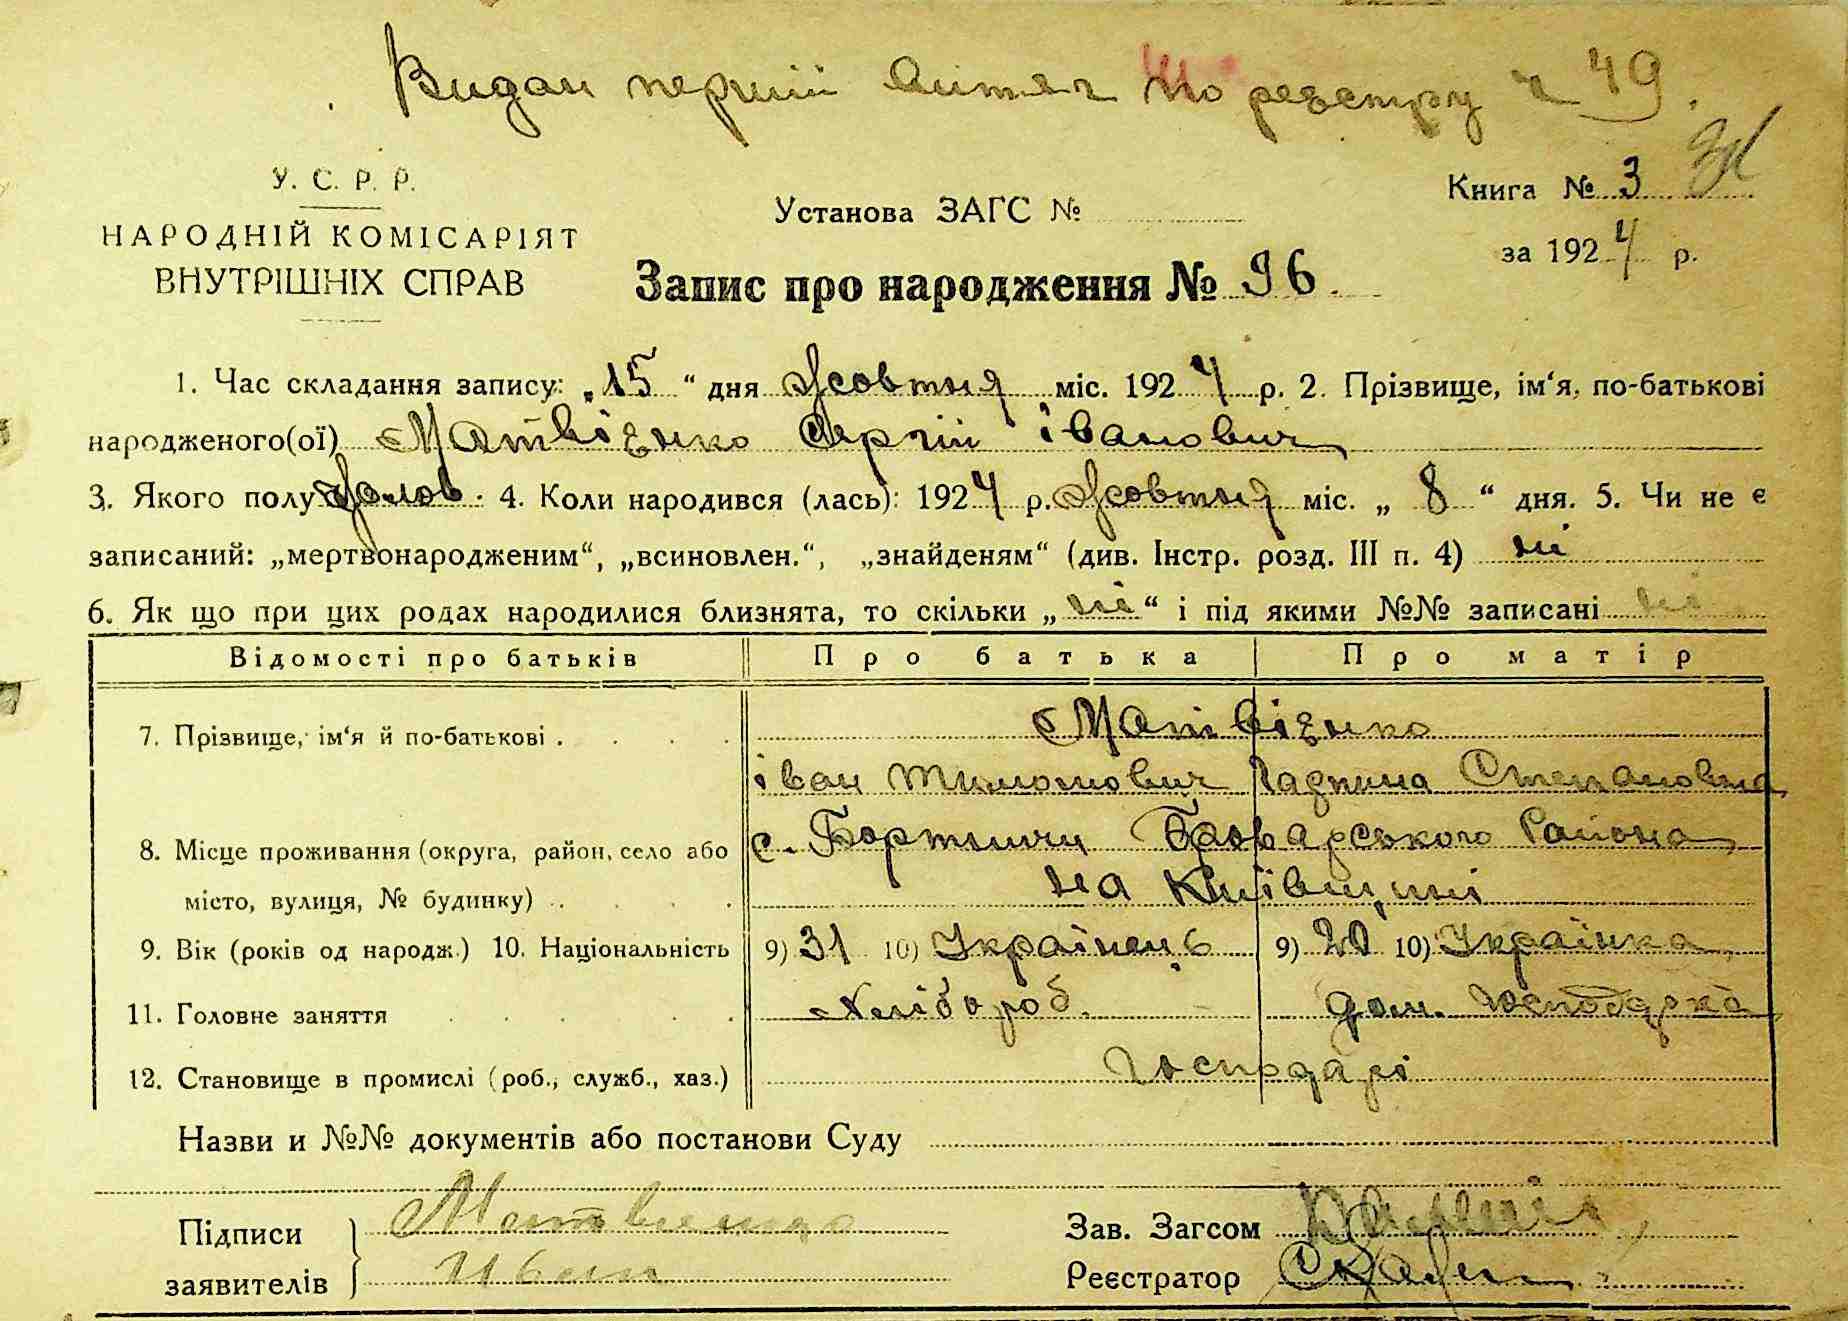 Видан перший витяг по реєстру № 49.
У. С. Р. Р.
НАРОДНІЙ КОМІСАРІЯТ
ВНУТРІШНІХ СПРАВ
Установа ЗАГС №
Книга № 3
за 1924 р.
Запис про народження № 96.
1. Час складання запису: „15“ дня Жовтня міс. 1924 р. 2. Прізвище, ім‘я, по-батькові
народженого(ої) Матвієнко Сергій Іванович
3. Якого полу чолов. 4. Коли народився (лась): 1924 р. Жовтня міс. „ 8 “ дня. 5. Чи не є
записаний: „мертвонародженим“, „всиновлен.“, „знайденям“ (див. Інстр. розд. III п. 4) ні
6. Як що при цих родах народилися близнята, то скільки „ ні “ і під якими №№ записані ні
Відомості про батьків Про батька Про матір
7. Прізвище, ім‘я й по-батькові . . . . Матвієнко
Іван Тимошович Гаврина Степановна
8. Місце проживання (округа, район, село або с. Бортничи Броварського Района
місто, вулиця, № будинку) . . . . на Київщині
9. Вік (років од народж.) 10. Національність 9) 31 10) Українець 9) 20 10) Українка
11. Головне заняття . . . . Хлібороб. дом. господарка
12. Становище в промислі (роб., служб., хаз.) Господарі
Назви и №№ документів або постанови Суду
Підписи Матвиенко
заявителів Иван
Зав. Загсом
Реєстратор